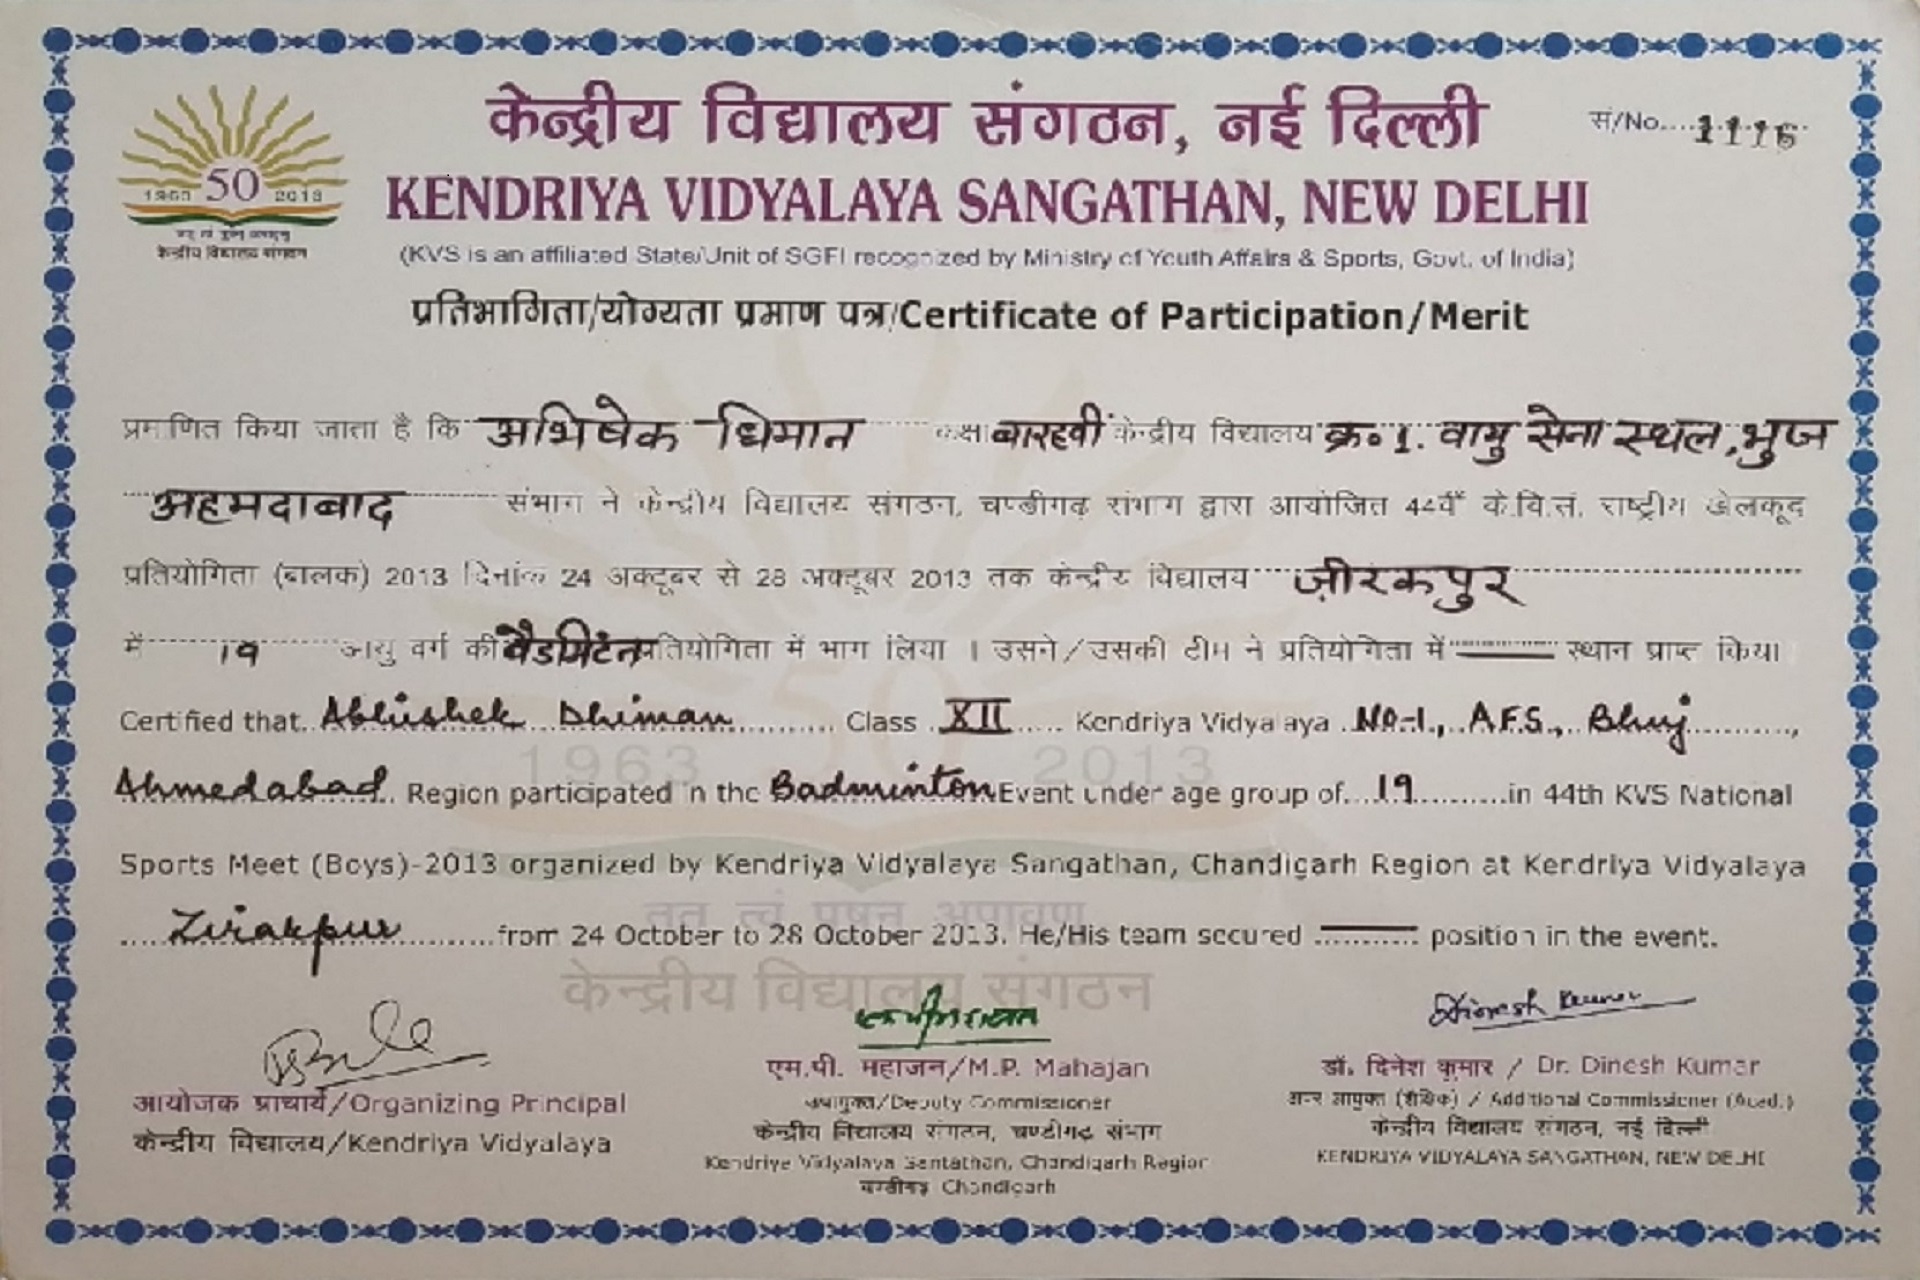 केन्द्रीय विद्यालय संगठन, नई दिल्ली
सं/No....1116
1963 50 2013
केन्द्रीय विद्यालय संगठन
KENDRIYA VIDYALAYA SANGATHAN, NEW DELHI
(KVS is an affiliated State/Unit of SGFI recognized by Ministry of Youth Affairs & Sports, Govt. of India)
प्रतिभागिता/योग्यता प्रमाण पत्र/Certificate of Participation/Merit
प्रमाणित किया जाता है कि अभिषेक धिमान कक्षा बारहवीं केन्द्रीय विद्यालय क्र० 1. वायु सेना स्थल, भुज
अहमदाबाद संभाग ने केन्द्रीय विद्यालय संगठन, चण्डीगढ़ संभाग द्वारा आयोजित 44वें के.वि.सं. राष्ट्रीय खेलकूद
प्रतियोगिता (बालक) 2013 दिनांक 24 अक्टूबर से 28 अक्टूबर 2013 तक केन्द्रीय विद्यालय ज़ीरकपुर
में 19 आयु वर्ग की बैडमिंटन प्रतियोगिता में भाग लिया । उसने/उसकी टीम ने प्रतियोगिता में —— स्थान प्राप्त किया
Certified that Abhishek Dhiman Class XII Kendriya Vidyalaya No-1, A.F.S., Bhuj,
Ahmedabad Region participated in the Badminton Event under age group of 19 in 44th KVS National
Sports Meet (Boys)-2013 organized by Kendriya Vidyalaya Sangathan, Chandigarh Region at Kendriya Vidyalaya
Zirakpur from 24 October to 28 October 2013. He/His team secured —— position in the event.
1963 50 2013
तत् त्वं पूषन् अपावृणु
केन्द्रीय विद्यालय संगठन
Dinesh Kumar
आयोजक प्राचार्य/Organizing Principal
केन्द्रीय विद्यालय/Kendriya Vidyalaya
एम.पी. महाजन/M.P. Mahajan
उपायुक्त/Deputy Commissioner
केन्द्रीय विद्यालय संगठन, चण्डीगढ़ संभाग
Kendriya Vidyalaya Santathan, Chandigarh Region
चण्डीगढ़ Chandigarh
डॉ. दिनेश कुमार / Dr. Dinesh Kumar
अपर आयुक्त (शैक्षिक) / Additional Commissioner (Acad.)
केन्द्रीय विद्यालय संगठन, नई दिल्ली
KENDRIYA VIDYALAYA SANGATHAN, NEW DELHI